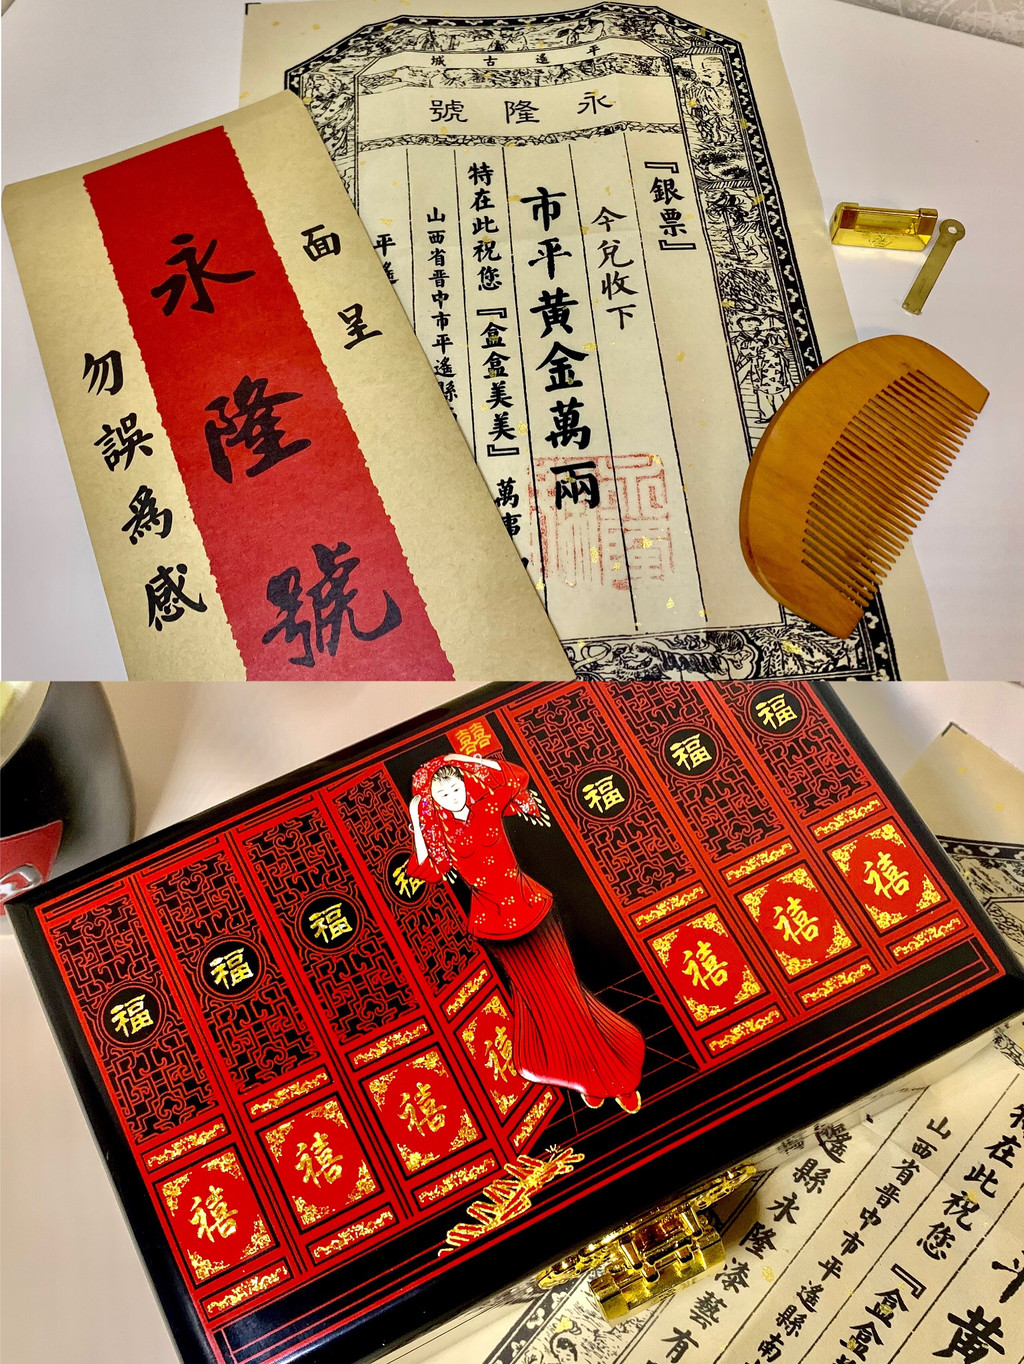 面呈
永隆號
勿誤為感
平遙古城
永隆號
『銀票』
今兌收下
市平黃金萬兩
特在此祝您『盒盒美美』萬事
山西省晉中市平遙縣
平遙
囍
福
福
福
福
福
福
福
禧
禧
禧
禧
禧
禧
禧
黃
特在此祝您『盒盒
山西省晉中市平遙縣南
遙縣永隆漆藝有